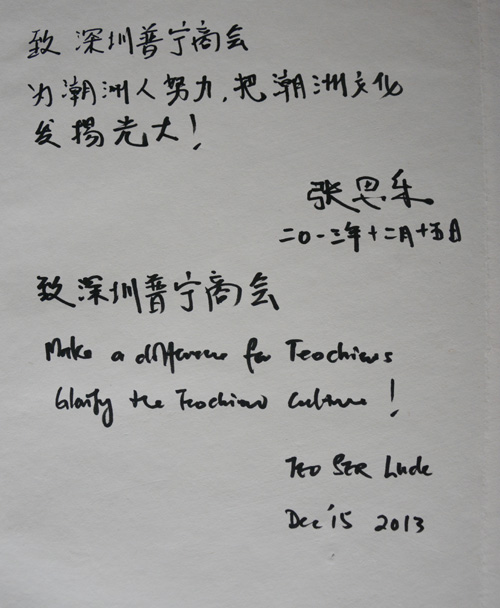 致 深圳普宁商会
为潮洲人努力,把潮洲文化
发揚光大!
张思乐
二〇一三年十二月十五日
致深圳普宁商会
Make a difference for Teochews
Glorify the Teochew Culture!
TEO SER Luck
Dec '15 2013